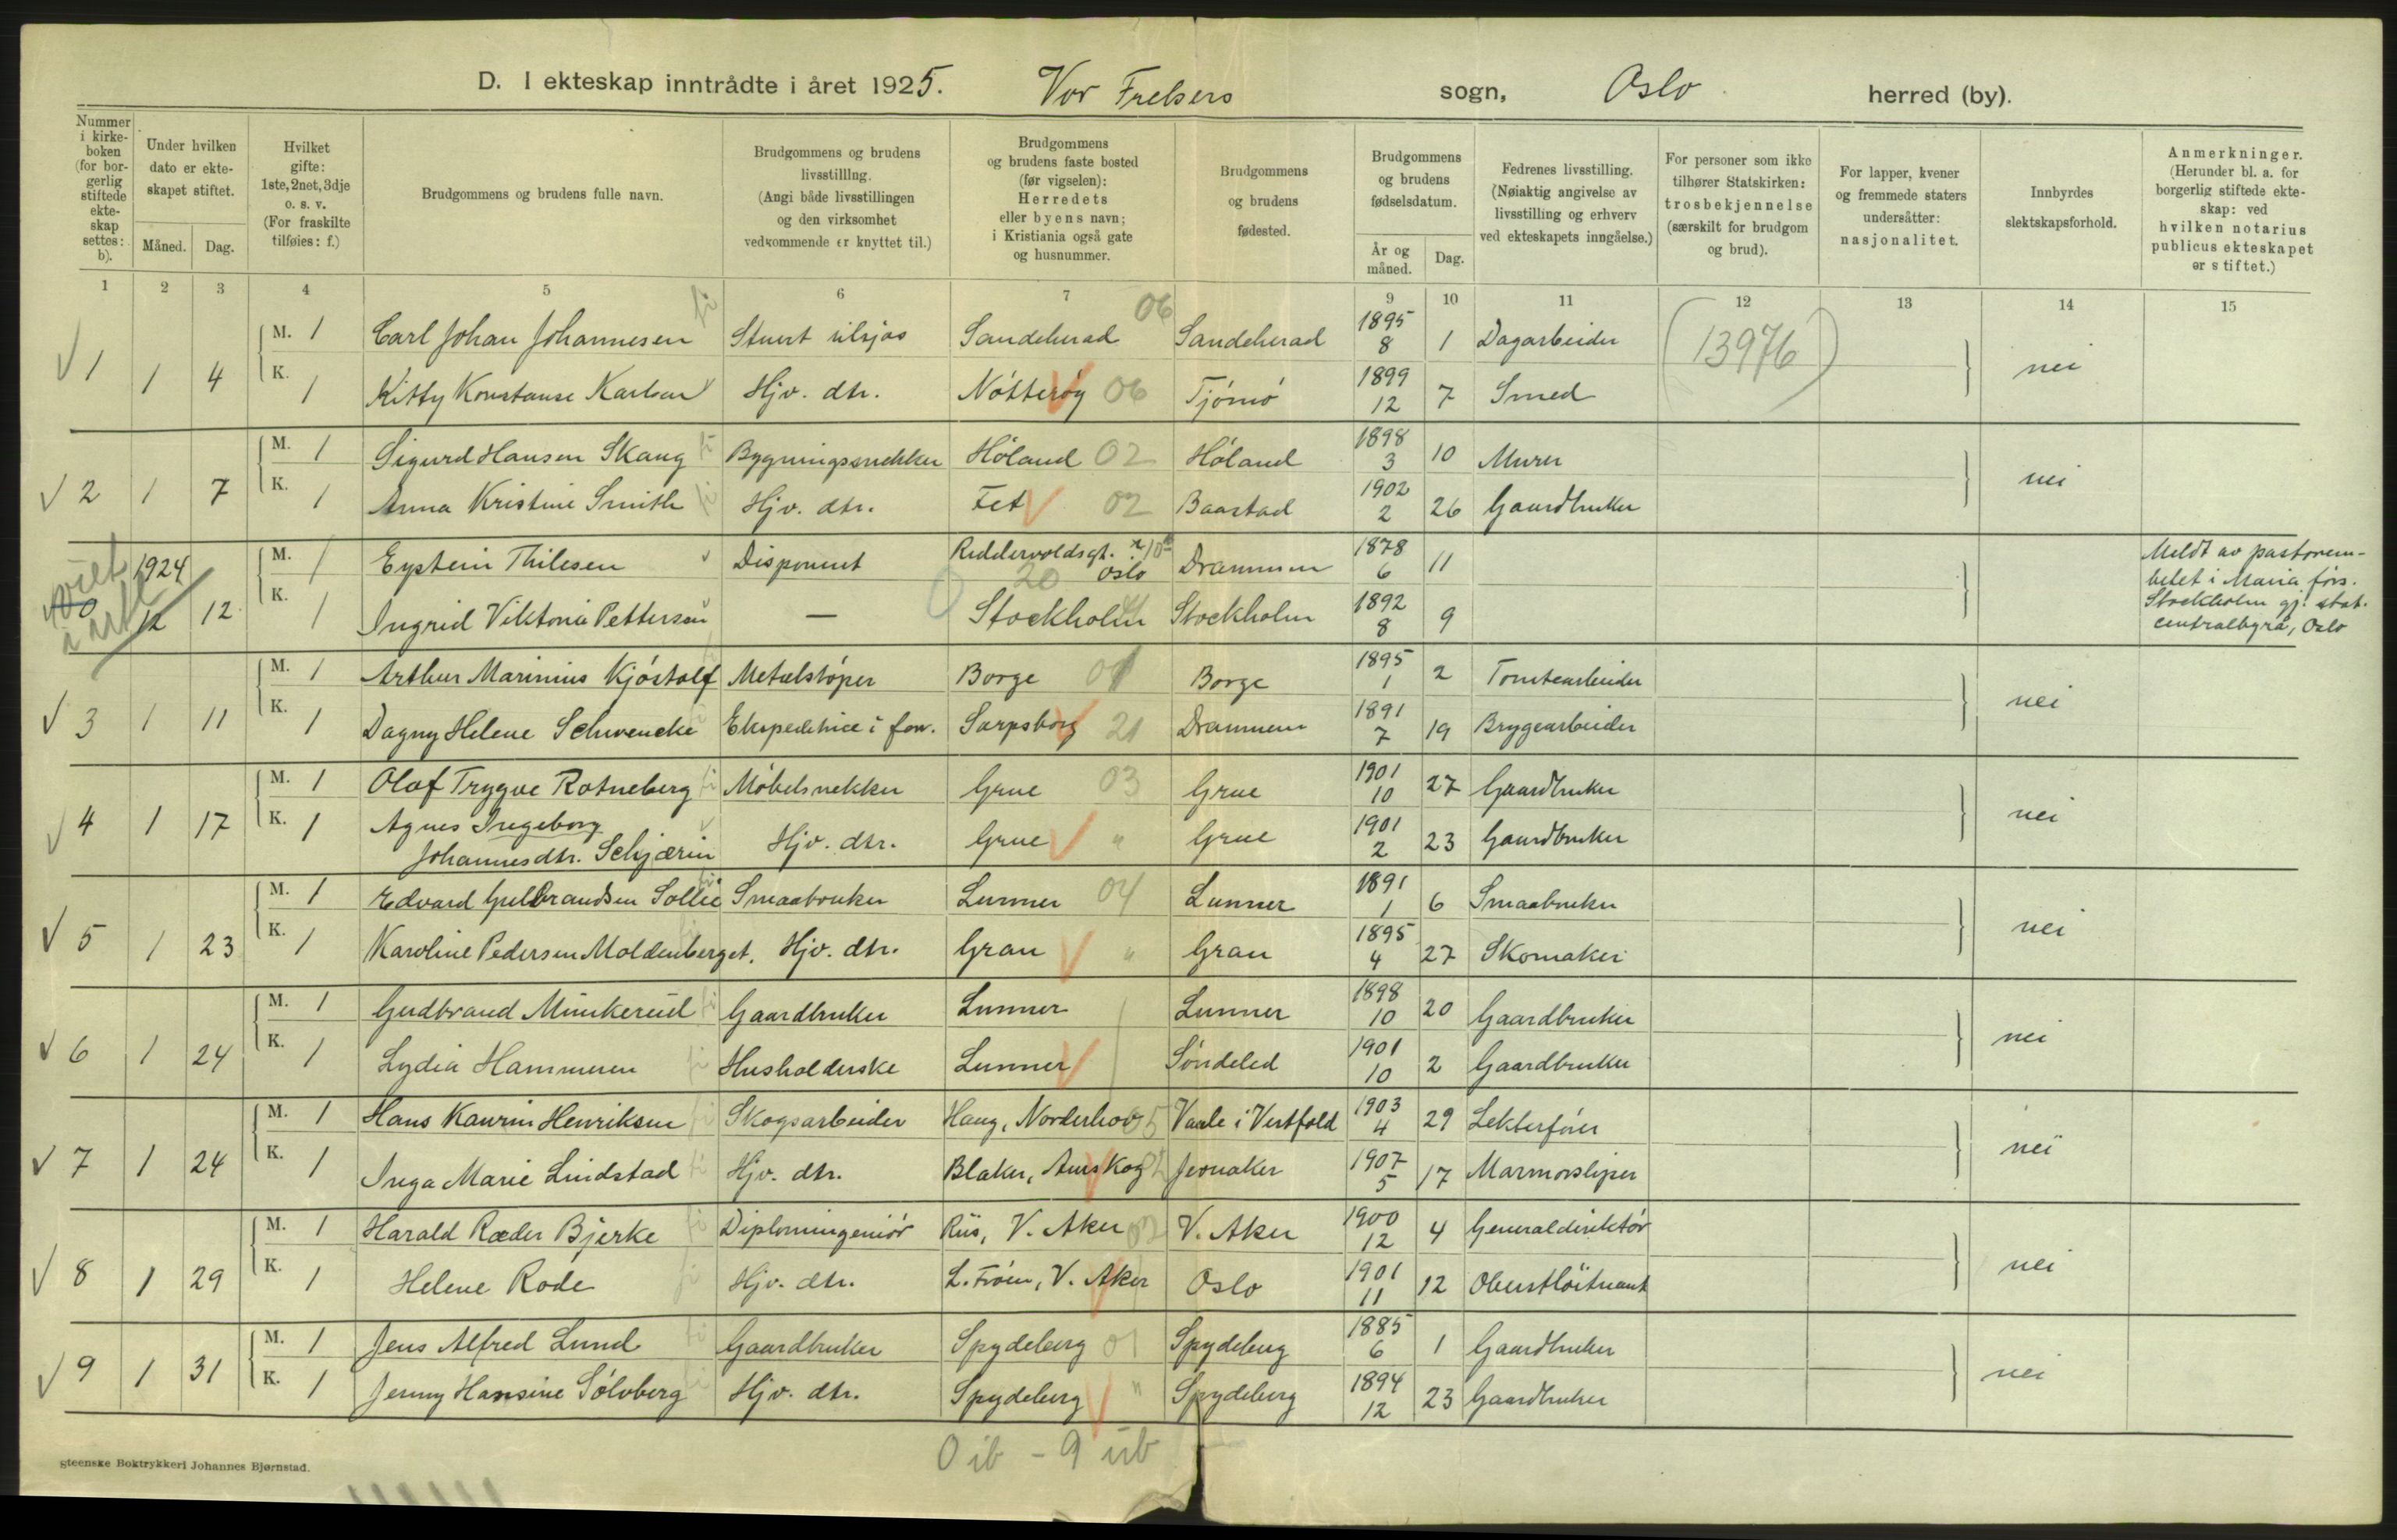 D. I ekteskap inntrådte i året 1925. Vor Frelsers sogn, Oslo herred (by).
Nummer i kirke-boken (for bor-gerlig stiftede ekte-skap settes: b).
Under hvilken dato er ekte-skapet stiftet.
Måned. Dag.
Hvilket gifte: 1ste, 2net, 3dje o. s. v. (For fraskilte tilføies: f.)
Brudgommens og brudens fulle navn.
Brudgommens og brudens livsstilling. (Angi både livsstillingen og den virksomhet vedkommende er knyttet til.)
Brudgommens og brudens faste bosted (før vigselen): Herredets eller byens navn; i Kristiania også gate og husnummer.
Brudgommens og brudens fødested.
Brudgommens og brudens fødselsdatum.
År og måned. Dag.
Fedrenes livsstilling. (Nøiaktig angivelse av livsstilling og erhverv ved ekteskapets inngåelse.)
For personer som ikke tilhører Statskirken: trosbekjennelse (særskilt for brudgom og brud).
For lapper, kvener og fremmede staters undersåtter: nasjonalitet.
Innbyrdes slektskapsforhold.
Anmerkninger. (Herunder bl. a. for borgerlig stiftede ekte-skap: ved hvilken notarius publicus ekteskapet er stiftet.)
1 2 3 4 5 6 7 9 10 11 12 13 14 15
M. 1 Carl Johan Johannesen Stuert tilsjøs Sandeherad 06 Sandeherad 1895 8 1 Dagarbeider (13976)
√ 1 1 4 nei
K. 1 Kitty Konstanse Karlsen Hjv. dtr. Nøtterøy 06 Tjømø 1899 12 7 Smed
M. 1 Sigurd Hansen Skaug Bygningssnekker Høland 02 Høland 1898 3 10 Murer
√ 2 1 7 nei
K. 1 Anna Kristine Smith Hjv. dtr. Fet 02 Baastad 1902 2 26 Gaardbruker
1924 M. 1 Eystein Thilesen Disponent Riddervoldsgt. Oslo 20 Drammen 1878 6 11
12 12
K. 1 Ingrid Viktoria Petterson — Stockholm Stockholm 1892 8 9
Meldt av pastorem-
betet i Maria førs.
Stockholm gj. stat.
centralbyrå, Oslo
M. 1 Arthur Marinius Kjøstolf Metalstøper Borge 01 Borge 1895 1 2 Tomtearbeider
√ 3 1 11 nei
K. 1 Dagny Helene Schwencke Ekspeditrice i forr. Sarpsborg 21 Drammen 1891 7 19 Bryggearbeider
M. 1 Olaf Trygve Rotneberg Møbelsnekker Grue 03 Grue 1901 10 27 Gaardbruker
√ 4 1 17 nei
K. 1 Agnes Ingeborg
Johannesdtr. Schjærin Hjv. dtr. Grue " Grue 1901 2 23 Gaardbruker
M. 1 Edvard Gulbrandsen Sollie Smaabruker Lunner 04 Lunner 1891 1 6 Smaabruker
√ 5 1 23 nei
K. 1 Karoline Pedersen Moldenberget. Hjv. dtr. Gran " Gran 1895 4 27 Skomaker
M. 1 Gudbrand Munkerud Gaardbruker Lunner Lunner 1898 10 20 Gaardbruker
√ 6 1 24 nei
K. 1 Lydia Hammeren Husholderske Lunner Søndeled 1901 10 2 Gaardbruker
M. 1 Hans Kaurin Henriksen Skogsarbeider Haug, Norderhov 05 Vaale i Vestfold 1903 4 29 Lekterfører
√ 7 1 24 nei
K. 1 Inga Marie Lindstad Hjv. dtr. Blaker, Aurskog Jevnaker 1907 5 17 Marmorsliper
M. 1 Harald Ræder Bjerke Diplomingeniør Riis, V. Aker 02 V. Aker 1900 12 4 Generaldirektør
√ 8 1 29 nei
K. 1 Helene Rode Hjv. dtr. L. Frøen, V. Aker Oslo 1901 11 12 Oberstløitnant
M. 1 Jens Alfred Lund Gaardbruker Spydeberg 01 Spydeberg 1885 6 1 Gaardbruker
√ 9 1 31 nei
K. 1 Jenny Hansine Sølvberg Hjv. dtr. Spydeberg " Spydeberg 1894 12 23 Gaardbruker
0 ib - 9 ub
steenske Boktrykkeri Johannes Bjørnstad.